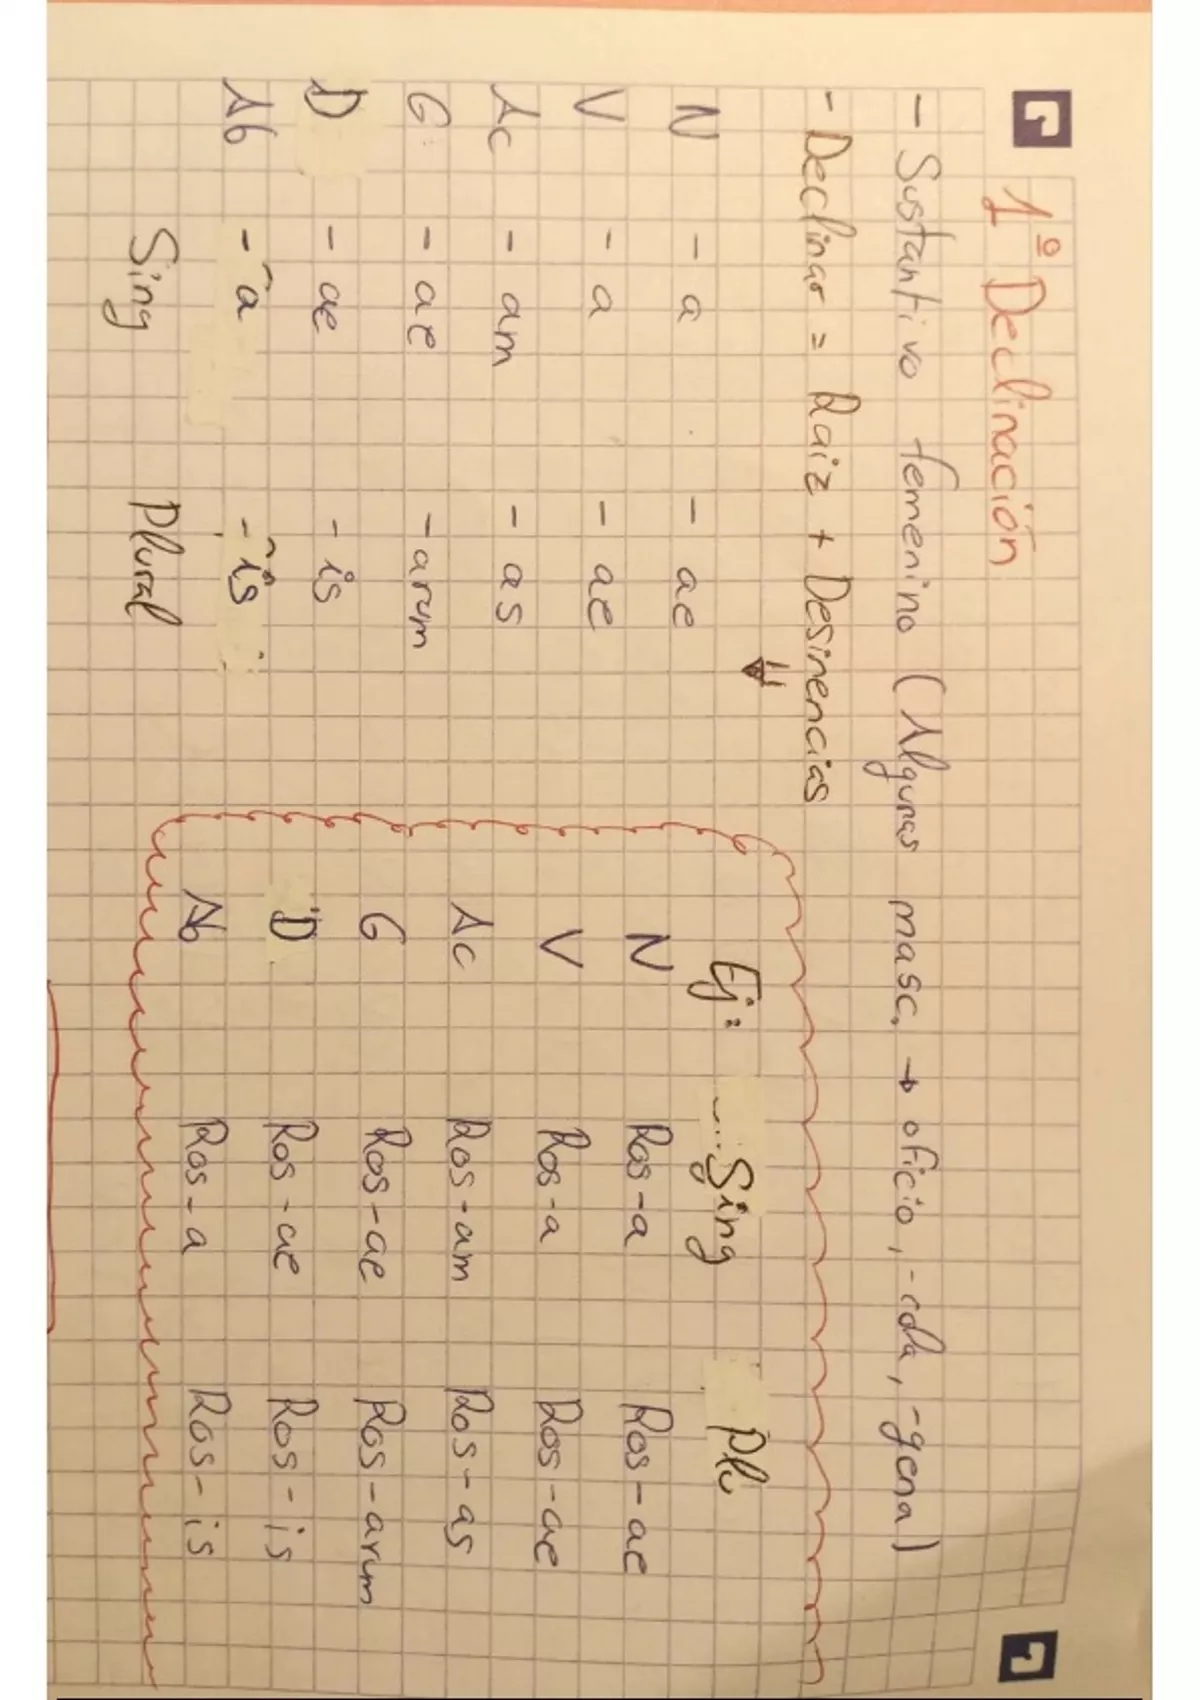 1º Declinación
- Sustantivo femenino (Algunas masc. → oficio, -cola, -gena)
- Declinar = Raiz + Desinencias
N - a - ae
V - a - ae
Ac - am - as
G - ae - arum
D - ae - is
Ab - ā - īs
Sing Plural
Ej: Sing Plu
N Ros-a Ros-ae
V Ros-a Ros-ae
Ac Ros-am Ros-as
G Ros-ae Ros-arum
D Ros-ae Ros-is
Ab Ros-a Ros-is